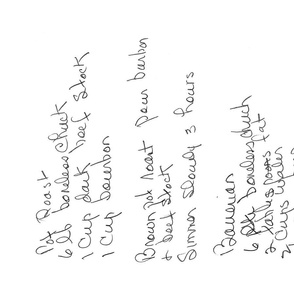 Pot Roast
6 lb boneless chuck
1 Cup dark beef stock
1 Cup bourbon
Brown pot roast pour bourbon
+ beef stock
Simmer slowly 3 hours
Bavarian
6 lb boneless chuck
2
2 Cups water